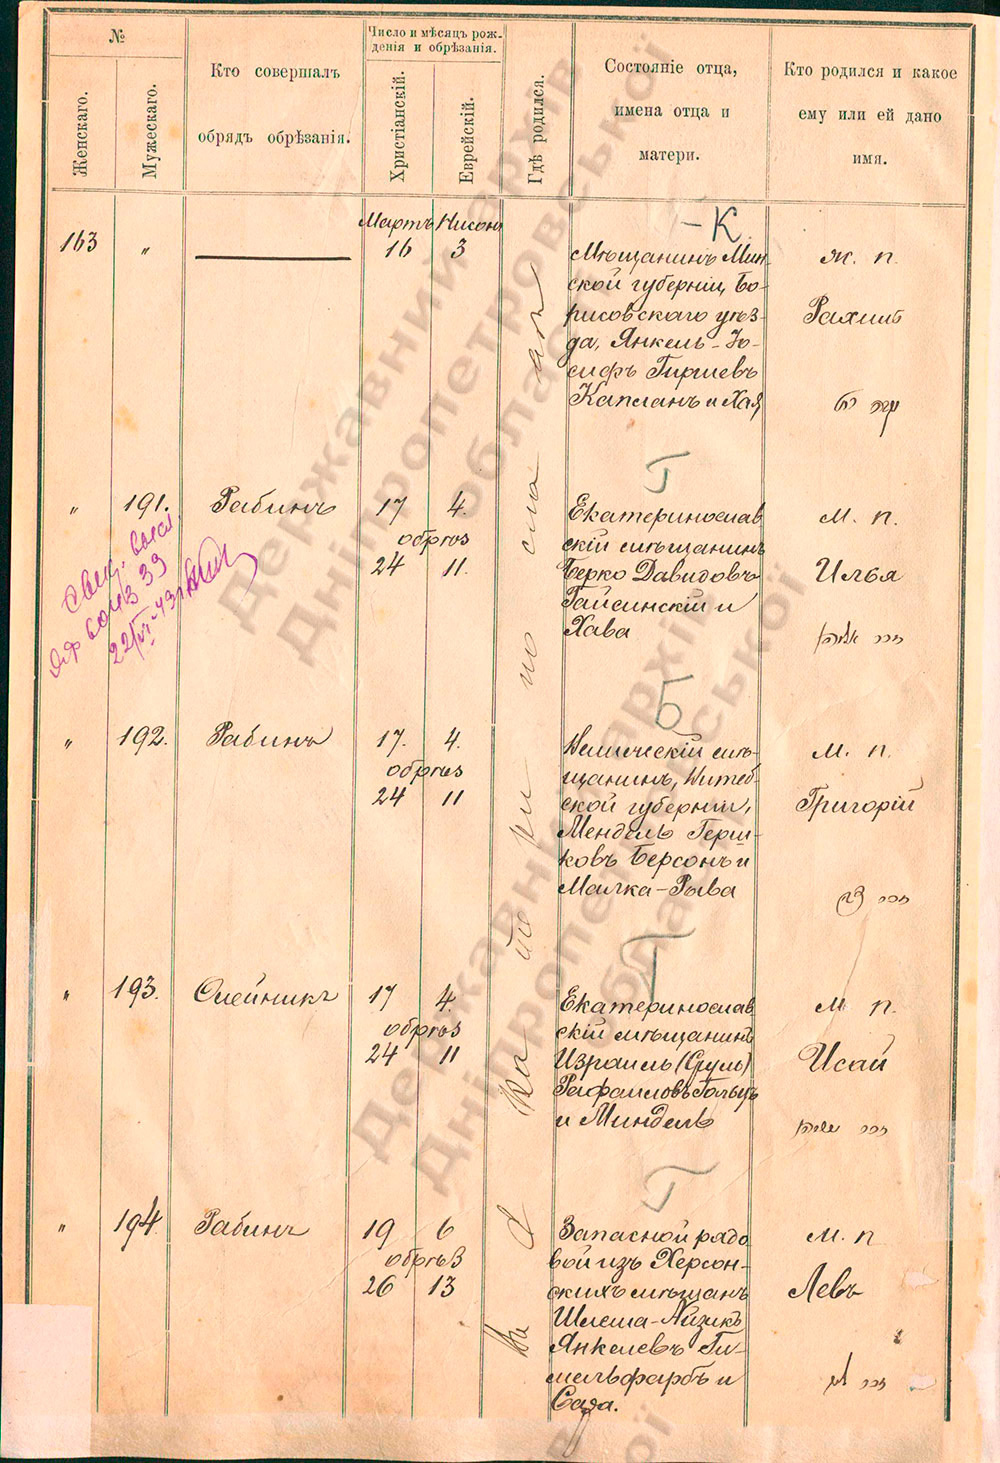 №
Женскаго.
Мужескаго.
Кто совершалъ
обрядъ обрѣзанія.
Число и мѣсяцъ рож-
денія и обрѣзанія.
Христіанскій.
Еврейскій.
Гдѣ родился.
Состояніе отца,
имена отца и
матери.
Кто родился и какое
ему или ей дано
имя.
Мартъ Нисонъ
163 " 16 3
- К.
Мѣщанинъ Мин-
ской губерніи, Бо-
рисовскаго уѣз-
да, Янкель-Іо-
сифъ Гиршевъ
Капланъ и Хая
ж. п.
Рахиль
" 191. Рабинъ 17 4.
обрѣз
24 11.
Г
Екатеринослав
скій мѣщанинъ
Берко Давидовъ
Гайсинскій и
Хава
м. п.
Илья
" 192. Рабинъ 17. 4.
обрѣз
24 11
Б
Велижскій мѣ-
щанинъ, Витеб-
ской губерніи,
Мендель Герш-
ковъ Берсонъ и
Малка-Рыва
м. п.
Григорій
" 193. Олейникъ 17 4.
обрѣз
24 11
Г
Екатеринослав
скій мѣщанинъ
Израиль (Сруль)
Рафаиловъ Гольцъ
и Миндель
м. п.
Исай
" 194. Рабинъ 19 6
обрѣз
26 13
Г
Запасной рядо
вой изъ Херсон-
скихъ мѣщанъ
Шлема-Айзикъ
Янкелевъ Ги-
мельфарбъ и
Сара.
м. п.
Левъ
Державний архів
Дніпропетровської
області
Державний архів
Дніпропетровської
області